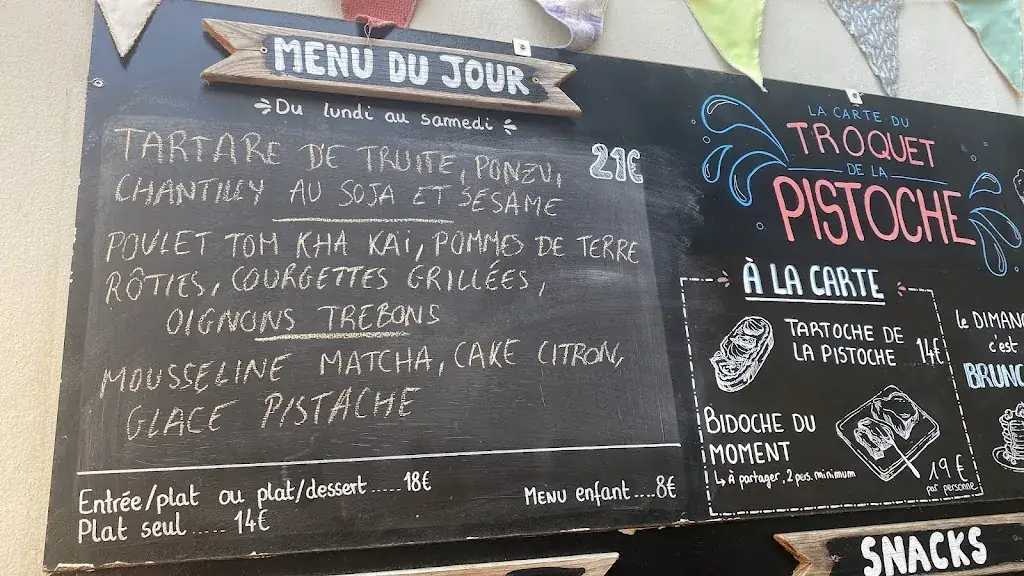 MENU DU JOUR
Du lundi au samedi
TARTARE DE TRUITE, PONZU,
CHANTILLY AU SOJA ET SÉSAME
21€
POULET TOM KHA KAÏ, POMMES DE TERRE
RÔTIES, COURGETTES GRILLÉES,
OIGNONS TREBONS
MOUSSELINE MATCHA, CAKE CITRON,
GLACE PISTACHE
Entrée/plat ou plat/dessert.....18€
Plat seul.....14€
Menu enfant....8€
LA CARTE DU
TROQUET
DE LA
PISTOCHE
À LA CARTE
TARTOCHE DE
LA PISTOCHE 14€
BIDOCHE DU
MOMENT
↳ à partager, 2 pers. minimum
19€
par personne
le DIMAN
c'est
BRUNC
SNACKS